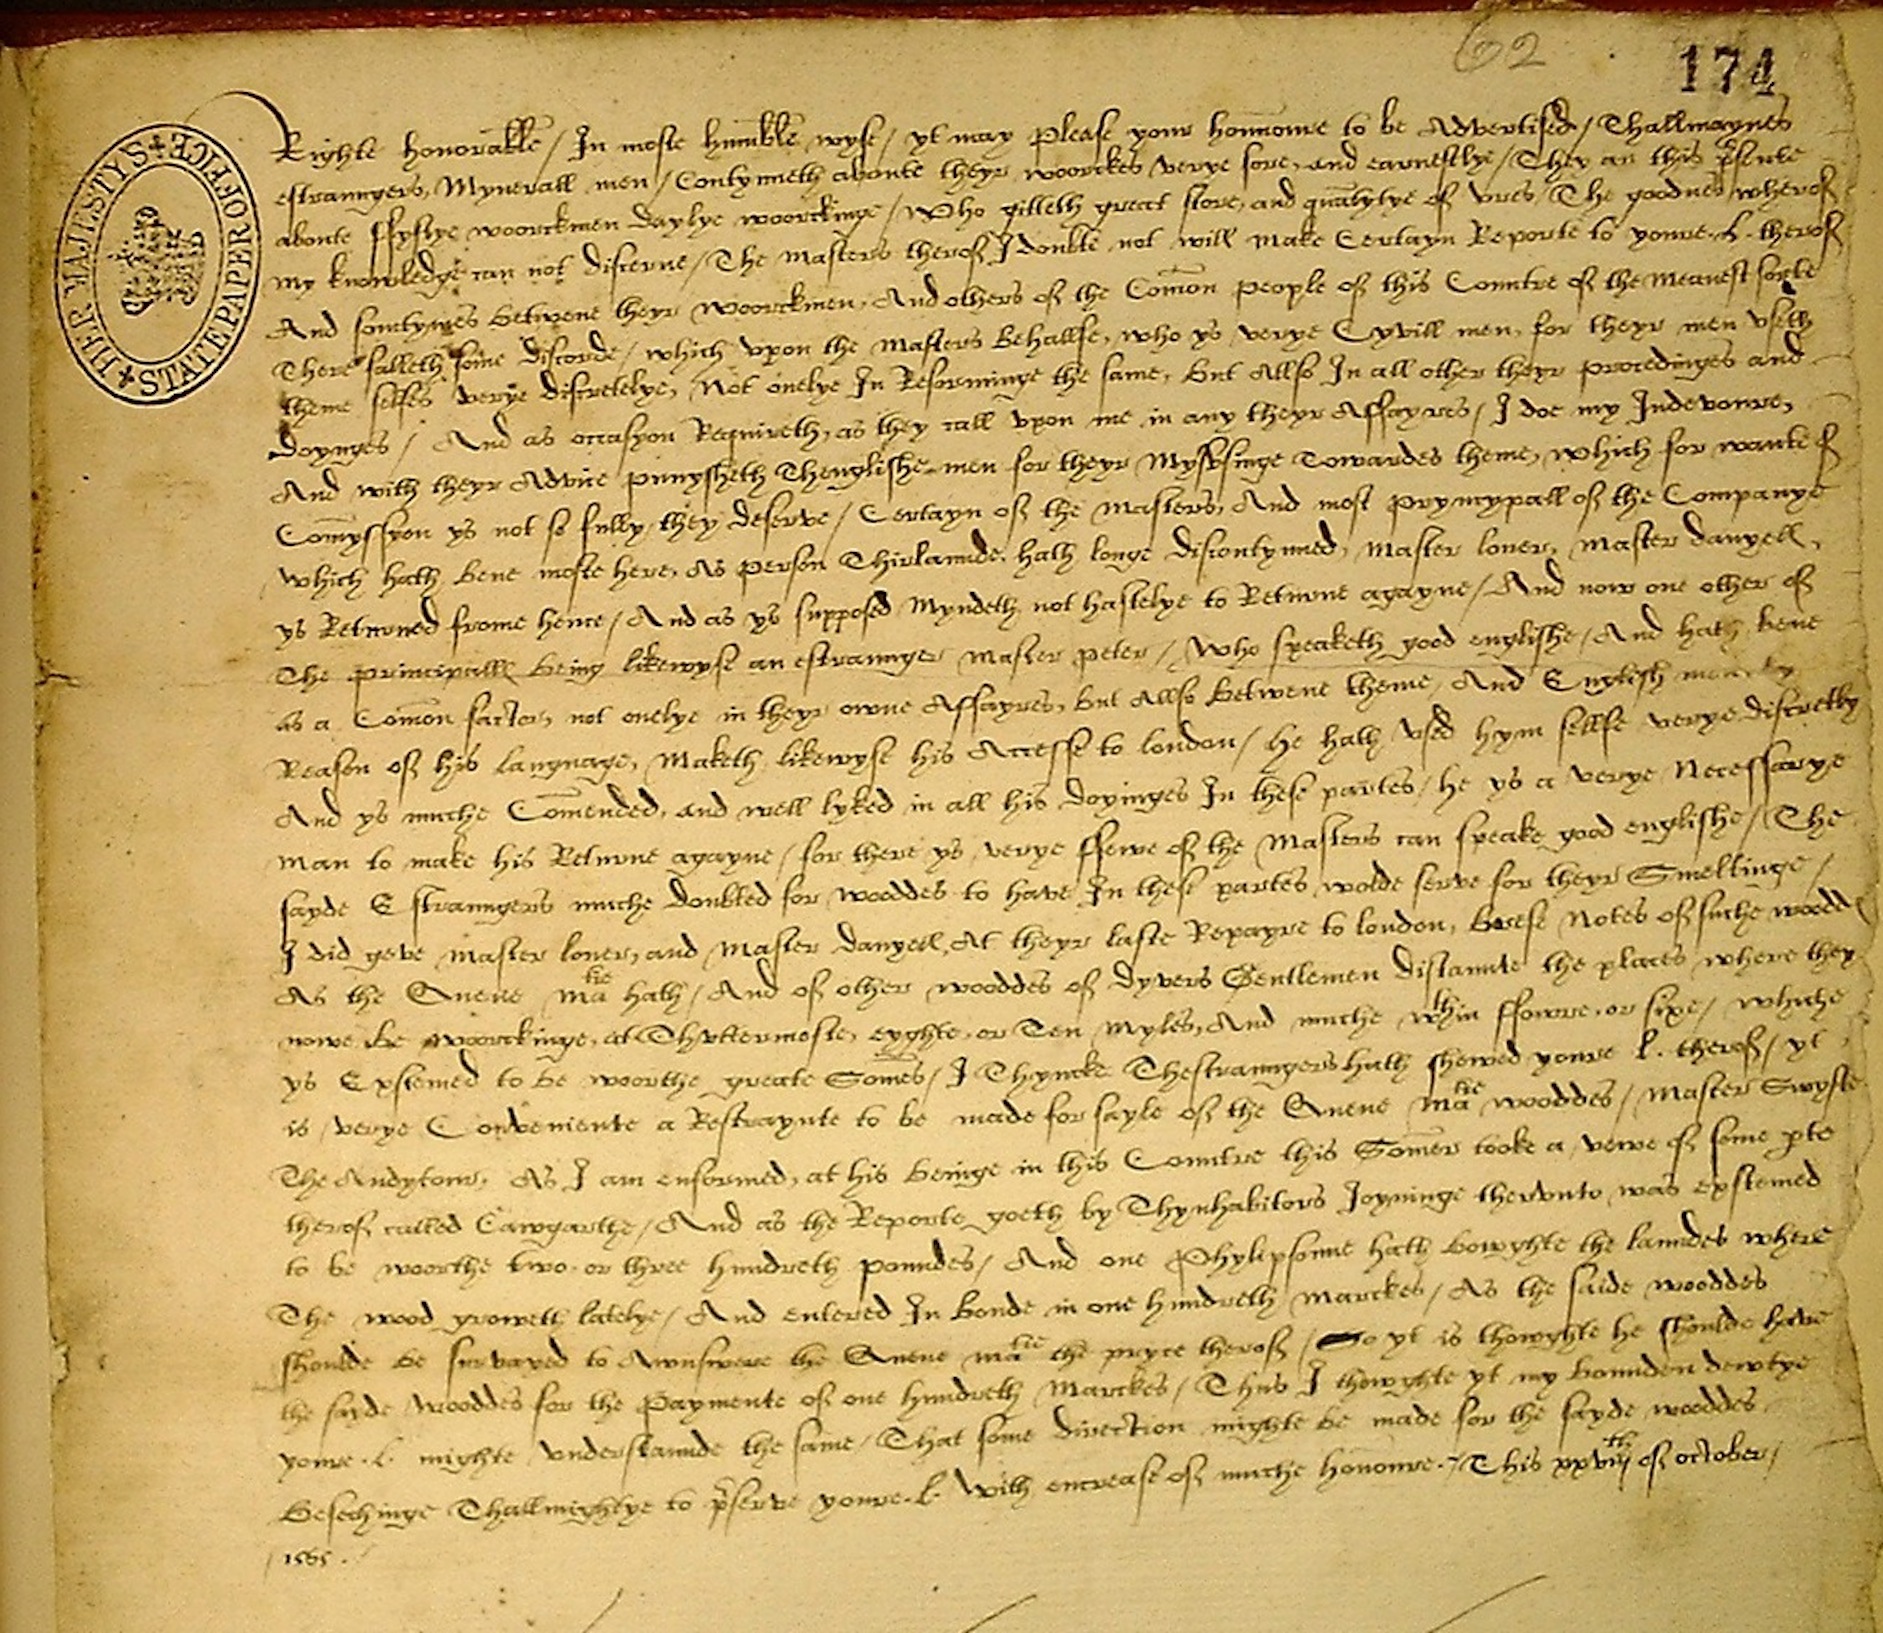 62
174
HER MAJESTYS STATE PAPER OFFICE
Righte honorable / In moste humble wyse / yt may please your honnoure to be Advertised / Thallmaynes
estraungers, Mynerall men / Contynueth aboute theyr woorckes verye sore, and earnestlye / They ar this pñte
aboute ffyftye woorckmen daylye woorckinge / Who gitteth great store, and quãtytye of Ures / The goodnes wherof
my knowledge can not discerne / The Masters therof I doubte not will make Certayn Reporte to youre .h. therof
And somtymes betwene theyr woorckmen, And others of the Comõn people of this Countre of the meanest sorte
There falleth some discorde / which upon the Masters behallfe, who ys verye Cyvill men, for theyr men useth
theme selfes verye discretelye, Not onelye In Reforminge the same, but Allso In all other theyr procedinges and
doynges / And as occasyon Requireth, as they call upon me in any theyr Affayres / I doe my Indevoure,
And with theyr Advice punysheth Thenglishe-men for theyr Mysusinge Towardes theme, which for wante of
Comyssyon ys not so fully, they deserve / Certayn of the Masters, And most pryncypall of the Companye
which hath bene moste here, As person Thirlannde, hath longe discontynued, Master loner, Master danyell,
ys Returned frome hence / And as ys supposed Myndeth not hastelye to Returne agayne / And now one other of
The principalls being likewyse an estraunger Master peter / Who speaketh good englishe / And hath bene
as a Comõn factor, not onelye in theyr owne Affayres, but Allso betwene theme, And English men by
Reason of his language, Maketh likewyse his Accesse to london / he hath used hym sellfe verye discretly
And ys muche Comẽnded, and well lyked in all his doyinges In these partes / he ys a verye Necessarye
man to make his Returne agayne / for there ys verye ffewe of the Masters can speake good englishe / The
sayde Estraungers muche doubted for wooddes to have In these partes wolde serve for theyr Smeltinge /
I did geve Master loner, and Master danyell, At theyr laste Repayre to london, breefe Notes of suche woodd
As the Quene Ma^tie hath / And of other wooddes of dyvers Gentlemen distannte the places where they
nowe be woorckinge, at Thuttermoste, eyghte, or Ten Myles, And muche w^thin ffowre, or sixe / whiche
ys Exstemed to be woorthe greate Somẽs / I Thyncke Thestraungers hath shewed youre .h. therof / yt
is verye Conveniente a Restraynte to be made for sayle of the Quene Ma^tie wooddes / Master Swyfte
The Audytour, As I am enformed, at his beinge in this Countre this Somẽr tooke a vewe of some pte
therof called Cawgarthe / And as the Reporte goeth by Thynhabitors Joyninge therunto was exstemed
to be woorthe two, or three hundreth poundes / And one Phylipsonne hath bowghte the lanndes where
The wood groweth latelye / And entered In bonde in one hundreth Marckes / As the saide wooddes
shoulde be survayed to Awnswere the Quene Ma^tie the pryce therof / So yt is thowghte he shoulde have
the sayde wooddes for the Paymente of one hundreth Marckes / Thus I thowghte yt my bounden dewtye
youre .h. mighte understannde the same / That some direction mighte be made for the sayde wooddes
Besechinge Thallmightye to pserve youre .h. With encrease of muche honoure / This xxviij^th of october /
1565.